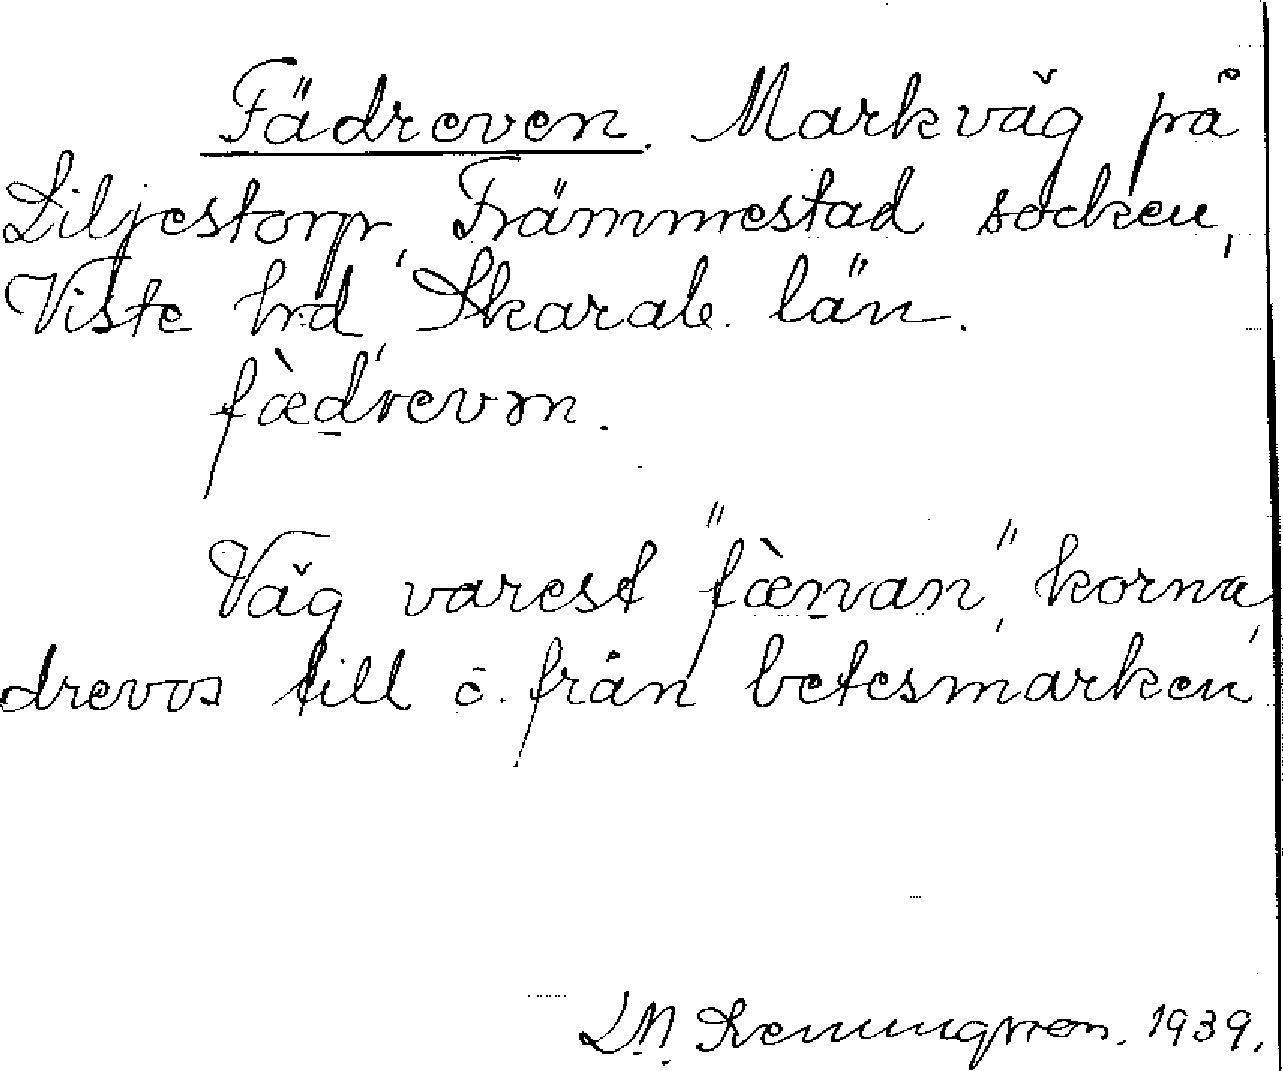 Fädreven. Markväg på
Liljestorp, Främmestad socken,
Viste hrd, Skarab. län.
fæ̀drevɘn.
Väg varest "fæ̀nan", korna,
drevos till o. från betesmarken
1939.